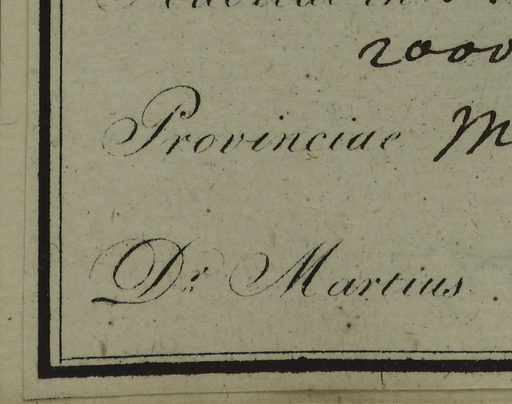 2000
Provinciae M
Dr. Martius.